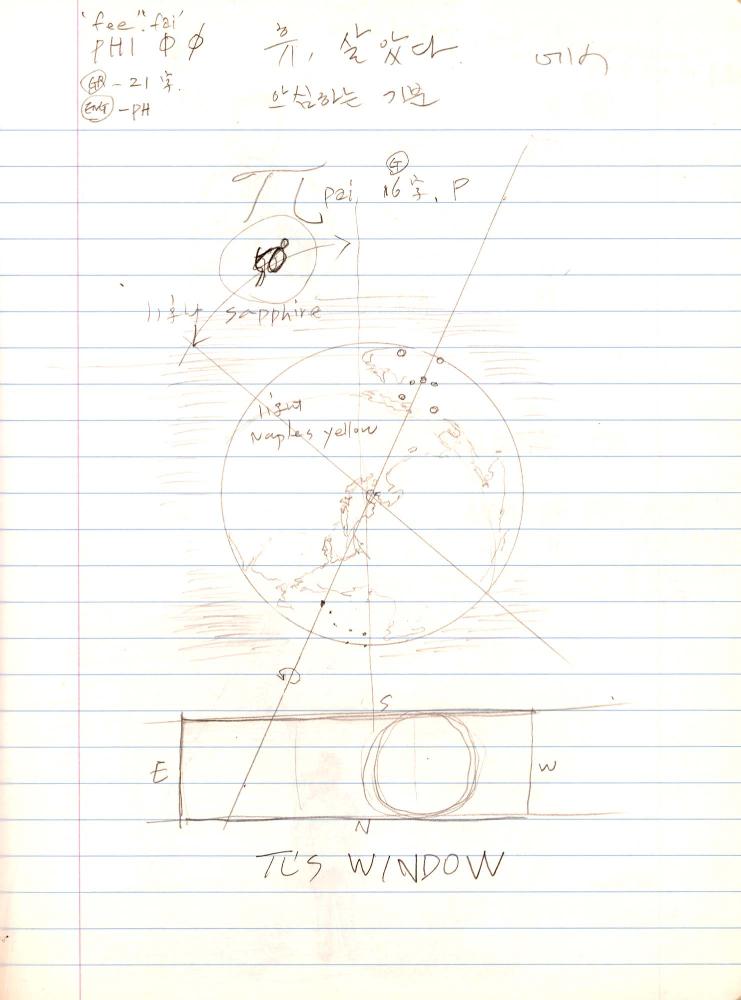 "fee". fai'
PHI Φ φ
휴, 살았다.
GR - 21 字.
ENG - PH
안심하는 기분
π pai 16 字. P
sapphire
Naples yellow
S
E
W
N
π'S WINDOW